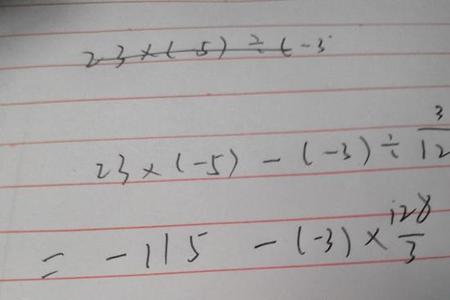 23×(-5)÷(-3
23×(-5)-(-3)÷3/12
=-115-(-3)×128/3